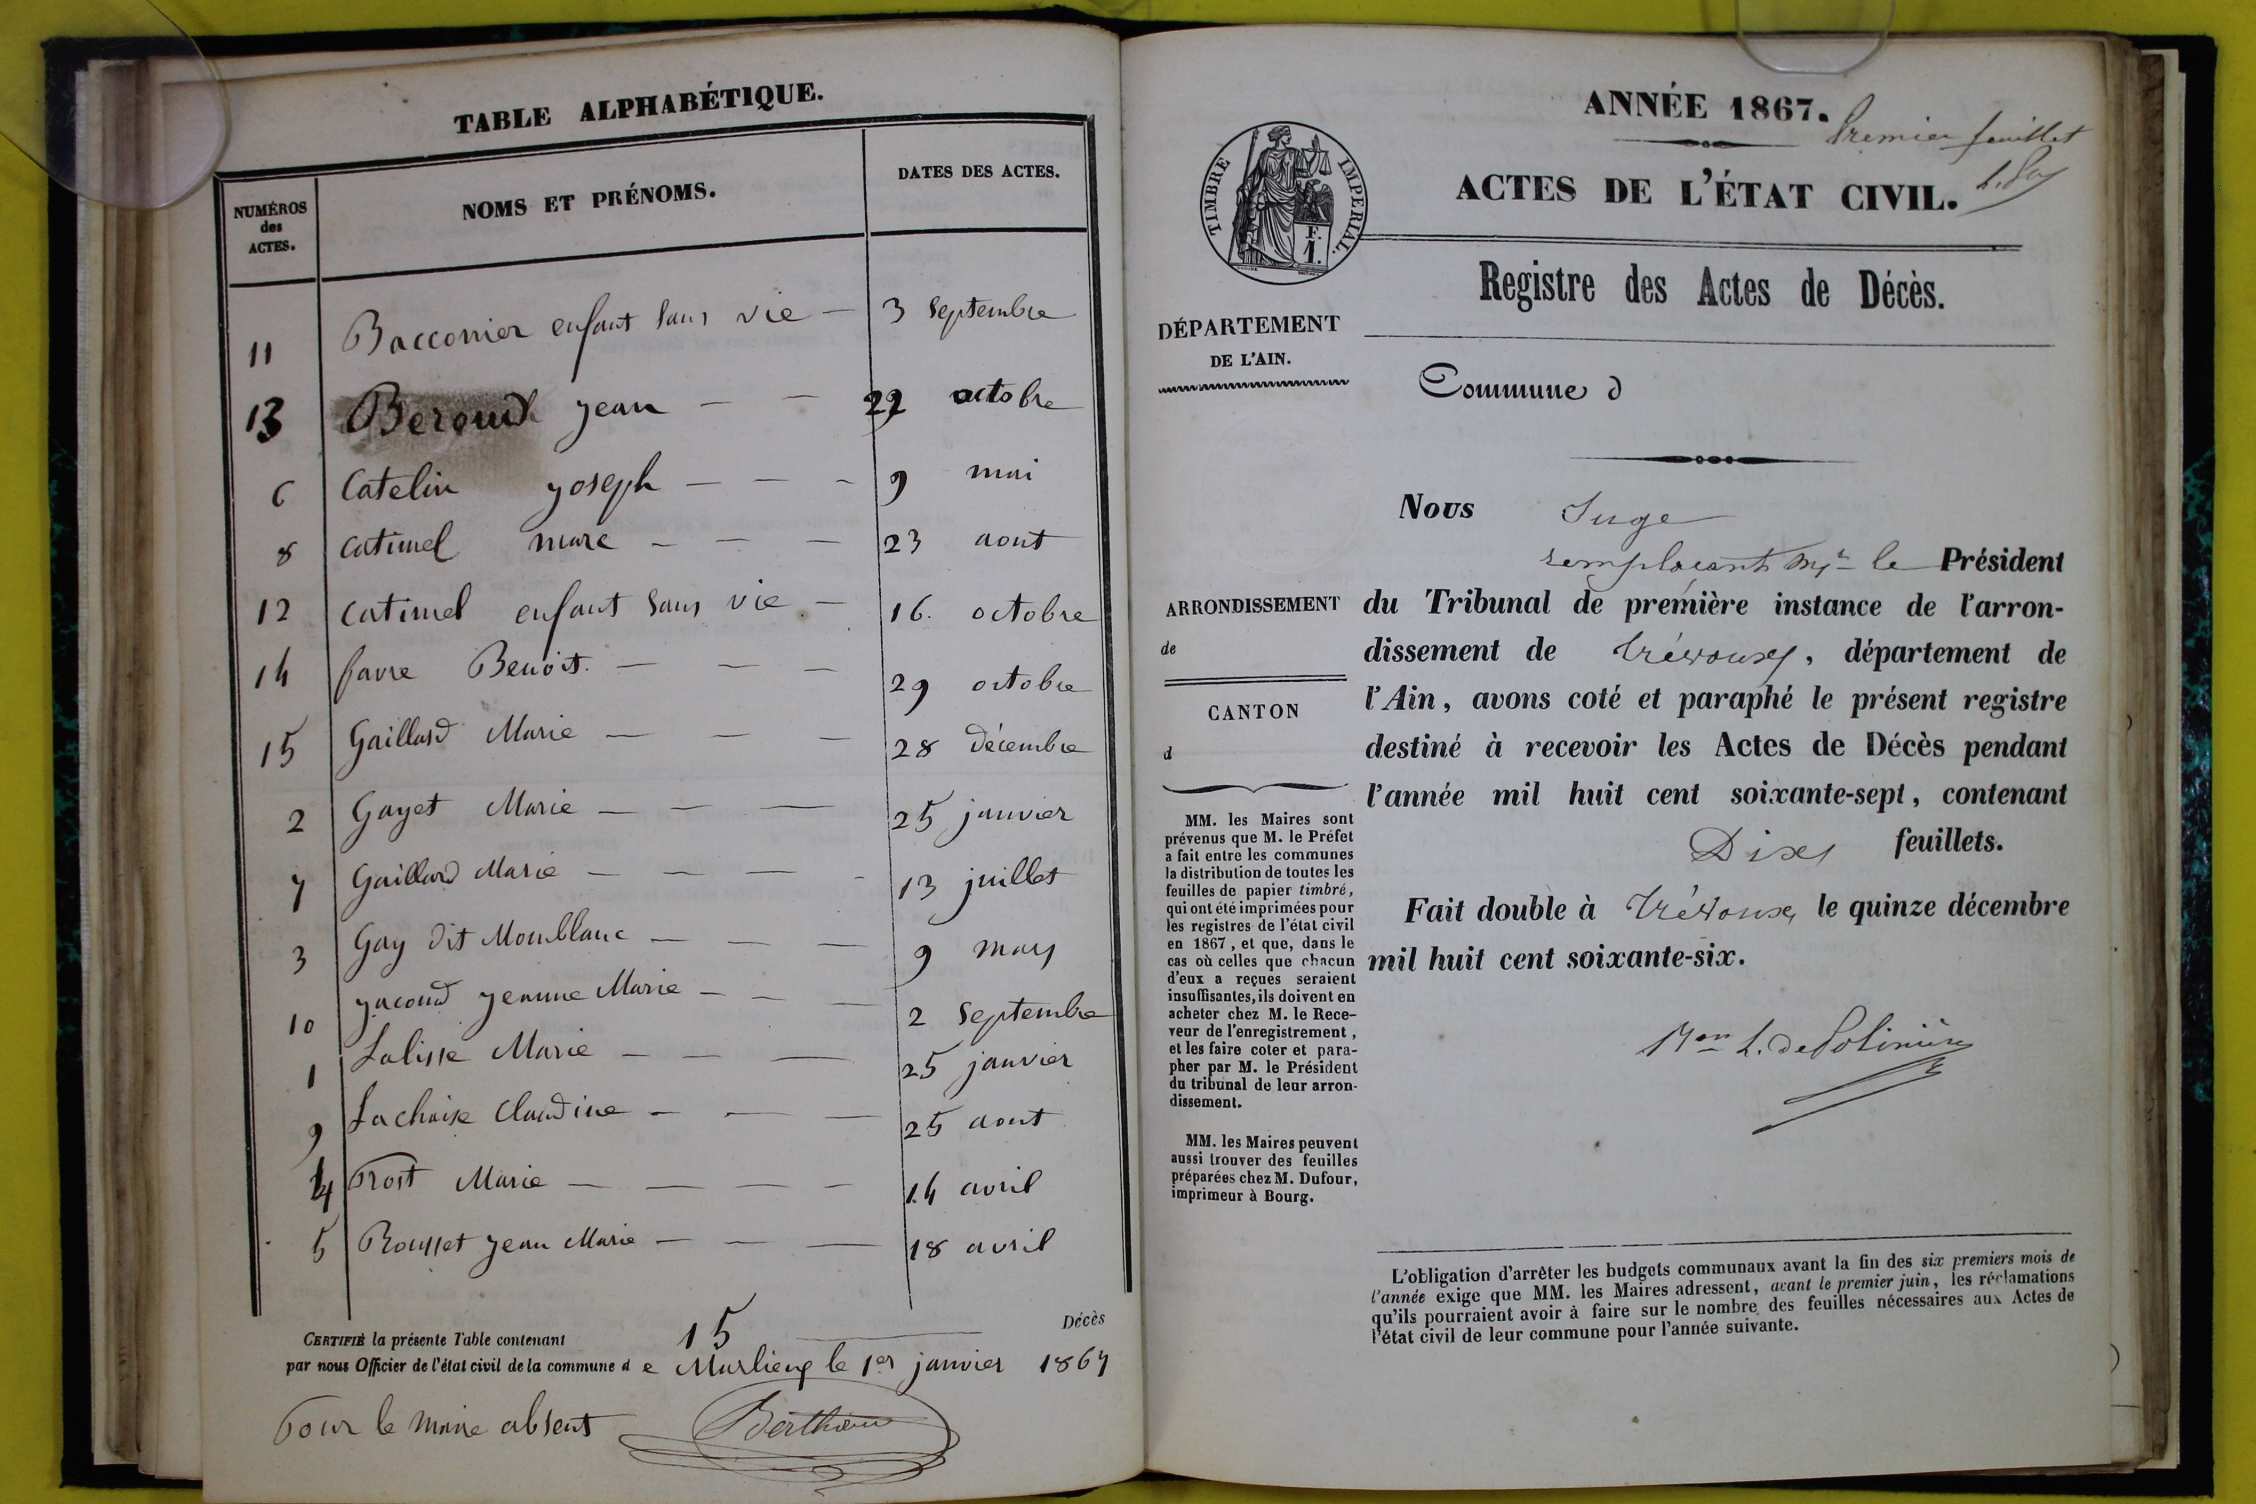 TABLE ALPHABÉTIQUE.
NUMÉROS des ACTES. NOMS ET PRÉNOMS. DATES DES ACTES.
11 Bacconnier enfant sans vie — 3 septembre
13 Beroud jean — — octobre
6 Catelin joseph — — - 9 mai
8 catimel marc — — — 23 aout
12 catimel enfant sans vie — 16. octobre
14 favre Benoit. — — — 29 octobre
15 Gaillard Marie — — — 28 décembre
2 Gayet Marie — — — 25 janvier
7 Gaillard Marie — — — - 13 juillet
3 Gay dit Momblanc — — — 9 mars
10 jacoud jeanne Marie — — — 2 septembre
1 Lalisse Marie — — — 25 janvier
9 Lachaise Claudine — — — 25 aout
4 Prost Marie — — — — 14 avril
5 Rousset jean Marie — — — 18 avril
CERTIFIÉ la présente Table contenant 15 Décès
par nous Officier de l'état civil de la commune d e Marlieux le 1er janvier 1867
Pour le maire absent
Berthieu
ANNÉE 1867.
Premier feuillet
ACTES DE L'ÉTAT CIVIL.
TIMBRE IMPERIAL.
F. 1.
Registre des Actes de Décès.
DÉPARTEMENT
DE L'AIN.
Commune d
Nous Juge
remplacant Mr le Président
ARRONDISSEMENT
de
CANTON
d
du Tribunal de première instance de l'arron-
dissement de trévoux, département de
l'Ain, avons coté et paraphé le présent registre
destiné à recevoir les Actes de Décès pendant
l'année mil huit cent soixante-sept, contenant
Dix feuillets.
Fait double à trévoux, le quinze décembre
mil huit cent soixante-six.
Mon L. de Polinière
MM. les Maires sont
prévenus que M. le Préfet
a fait entre les communes
la distribution de toutes les
feuilles de papier timbré,
qui ont été imprimées pour
les registres de l'état civil
en 1867, et que, dans le
cas où celles que chacun
d'eux a reçues seraient
insuffisantes, ils doivent en
acheter chez M. le Rece-
veur de l'enregistrement,
et les faire coter et para-
pher par M. le Président
du tribunal de leur arron-
dissement.
MM. les Maires peuvent
aussi trouver des feuilles
préparées chez M. Dufour,
imprimeur à Bourg.
L'obligation d'arrêter les budgets communaux avant la fin des six premiers mois de
l'année exige que MM. les Maires adressent, avant le premier juin, les réclamations
qu'ils pourraient avoir à faire sur le nombre des feuilles nécessaires aux Actes de
l'état civil de leur commune pour l'année suivante.